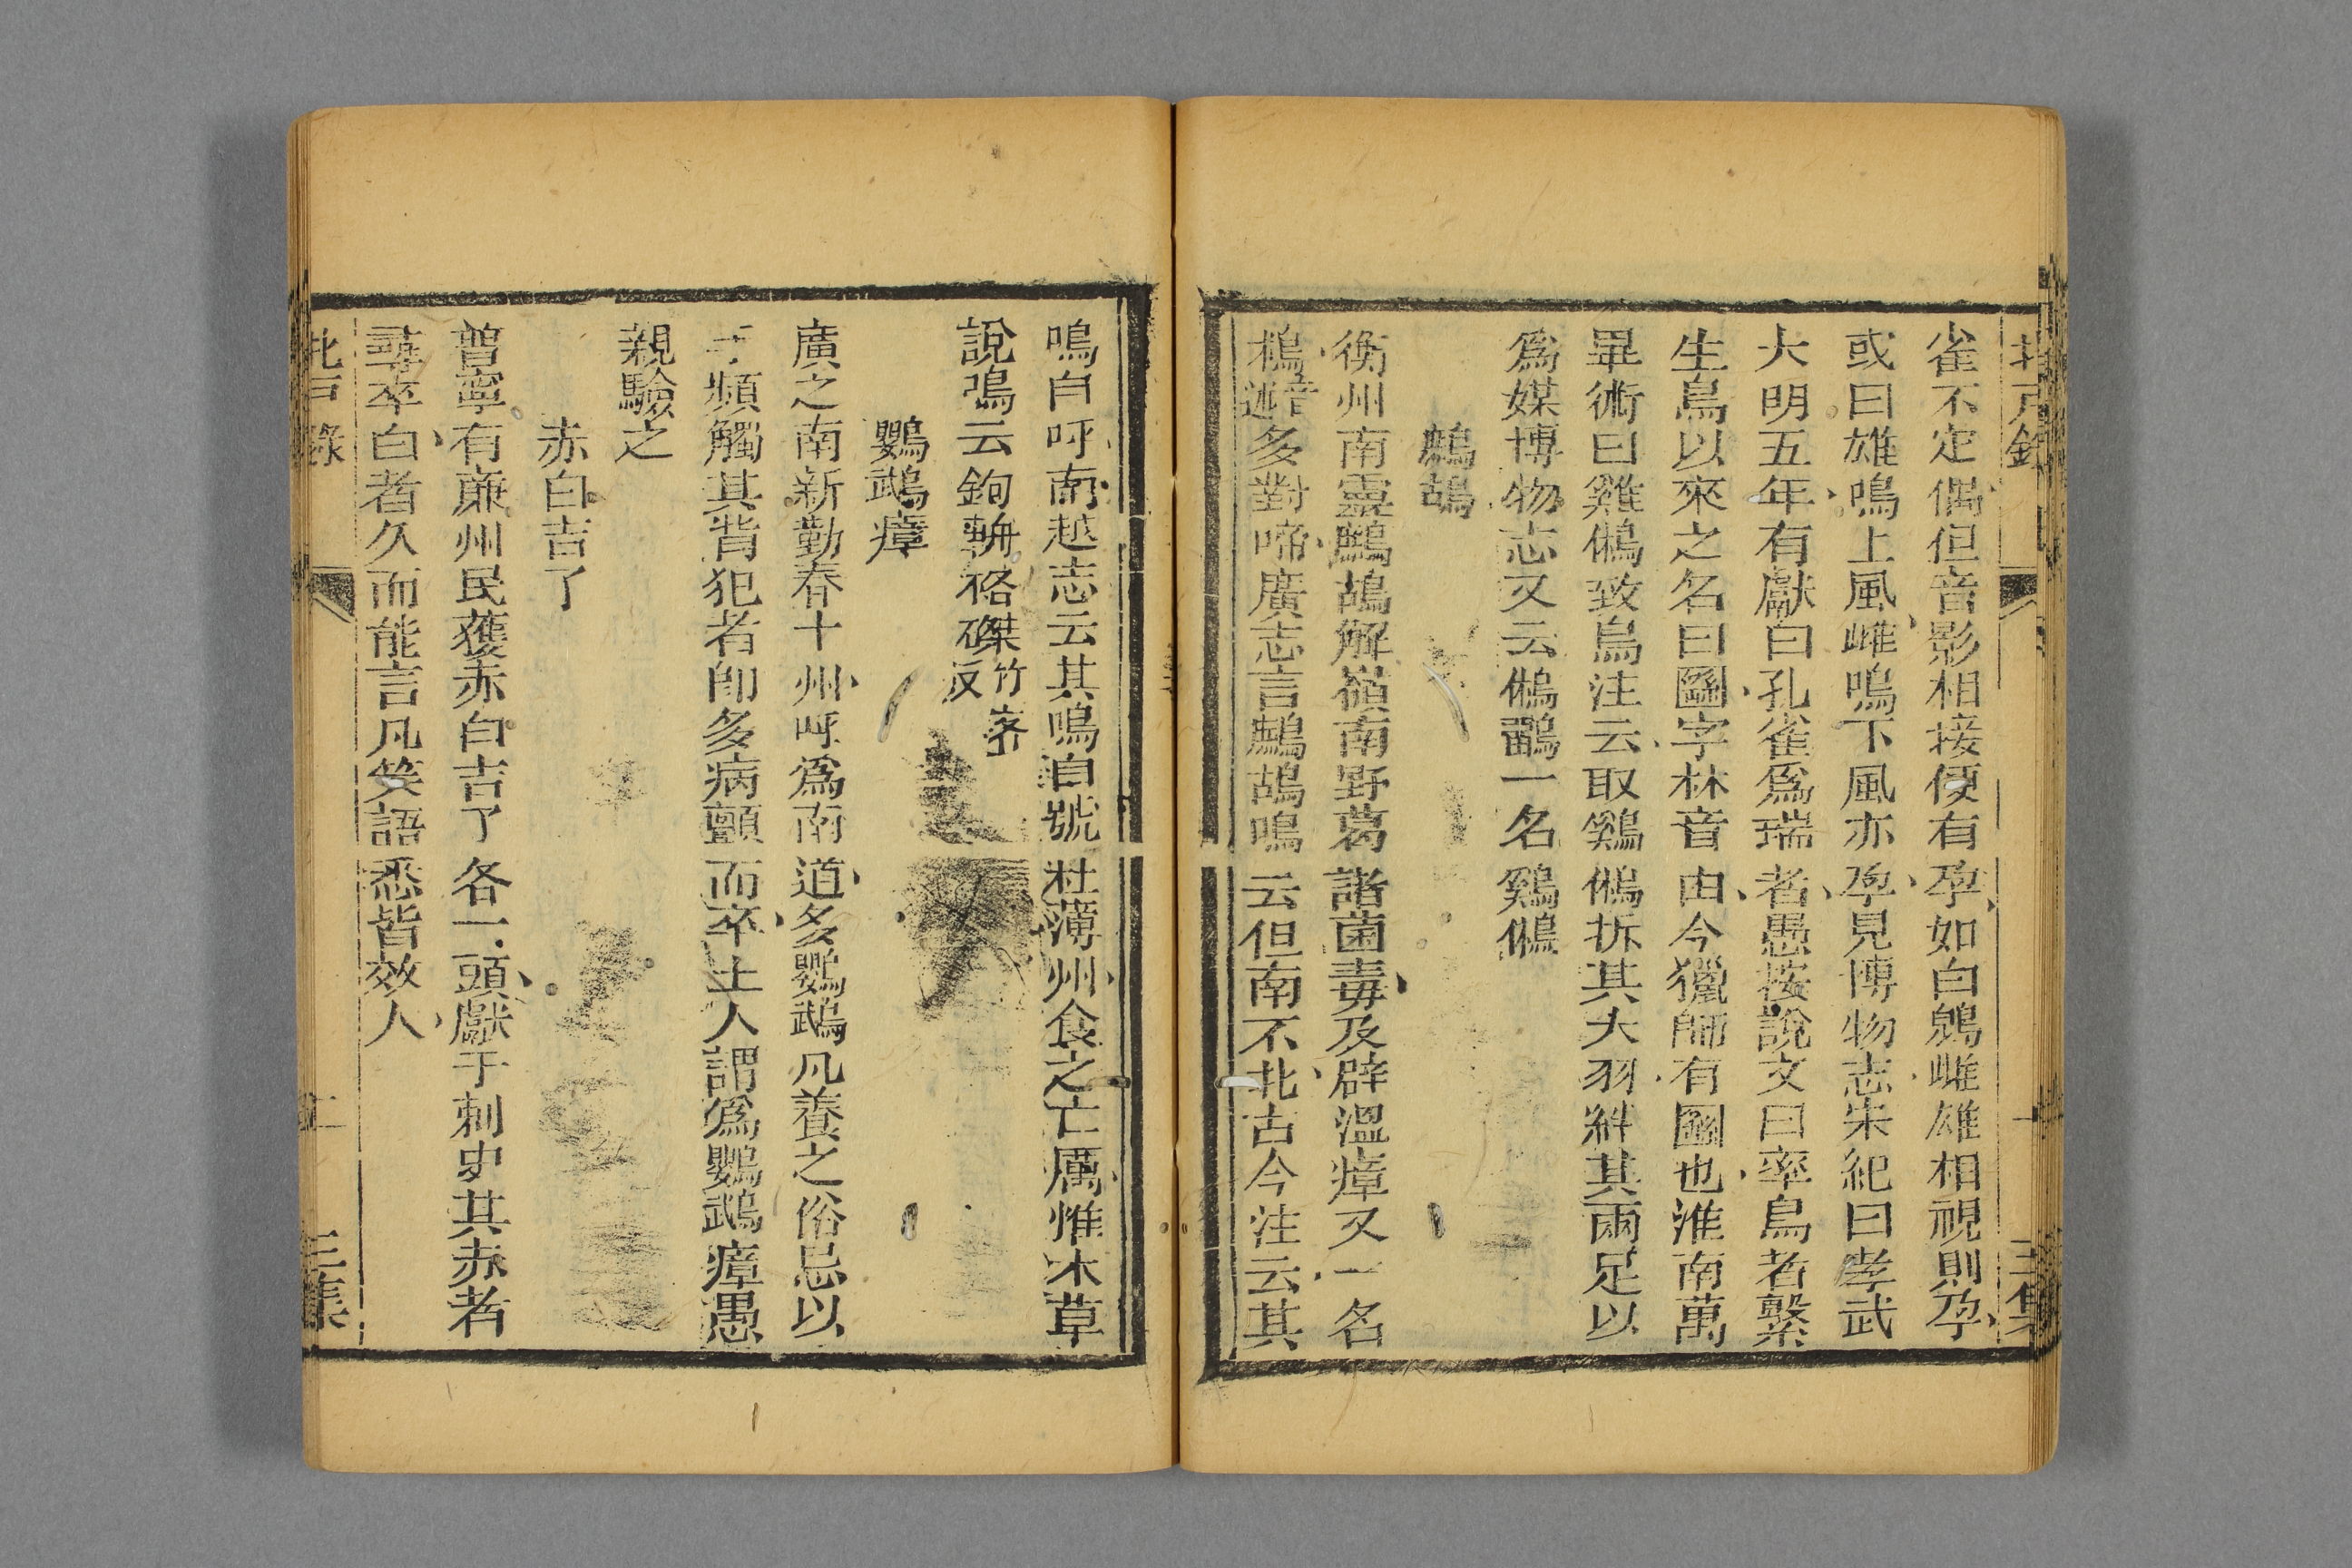 北戶錄 一 三集
雀不定偶但音影相接便有孕如白鵙雌雄相視則孕
或曰雄鳴上風雌鳴下風亦孕見博物志宋紀曰孝武
大明五年有獻白孔雀為瑞者愚按說文曰率鳥者繫
生鳥以來之名曰圝字林音由今獵師有圝也淮南萬
畢術曰雞鵂致鳥注云取鷄鵂拆其大羽絆其兩足以
為媒博物志又云鵂鶹一名鷄鵂
鷓鴣
衡州南靈鷓鴣解嶺南野葛諸菌毒及辟溫瘴又一名
鳴自呼南越志云其鳴自號杜薄州食之亡厲惟本草
說鳴云鉤輈格磔
鸚鵡瘴
廣之南新勤春十州呼為南道多鸚鵡凡養之俗忌以
手頻觸其背犯者卽多病顫而卒土人謂為鸚鵡瘴愚
親驗之
赤白吉了
普寧有廉州民獲赤白吉了各一頭獻于刺史其赤者
尋卒白者久而能言凡笑語悉皆效人
北戶錄 二 三集